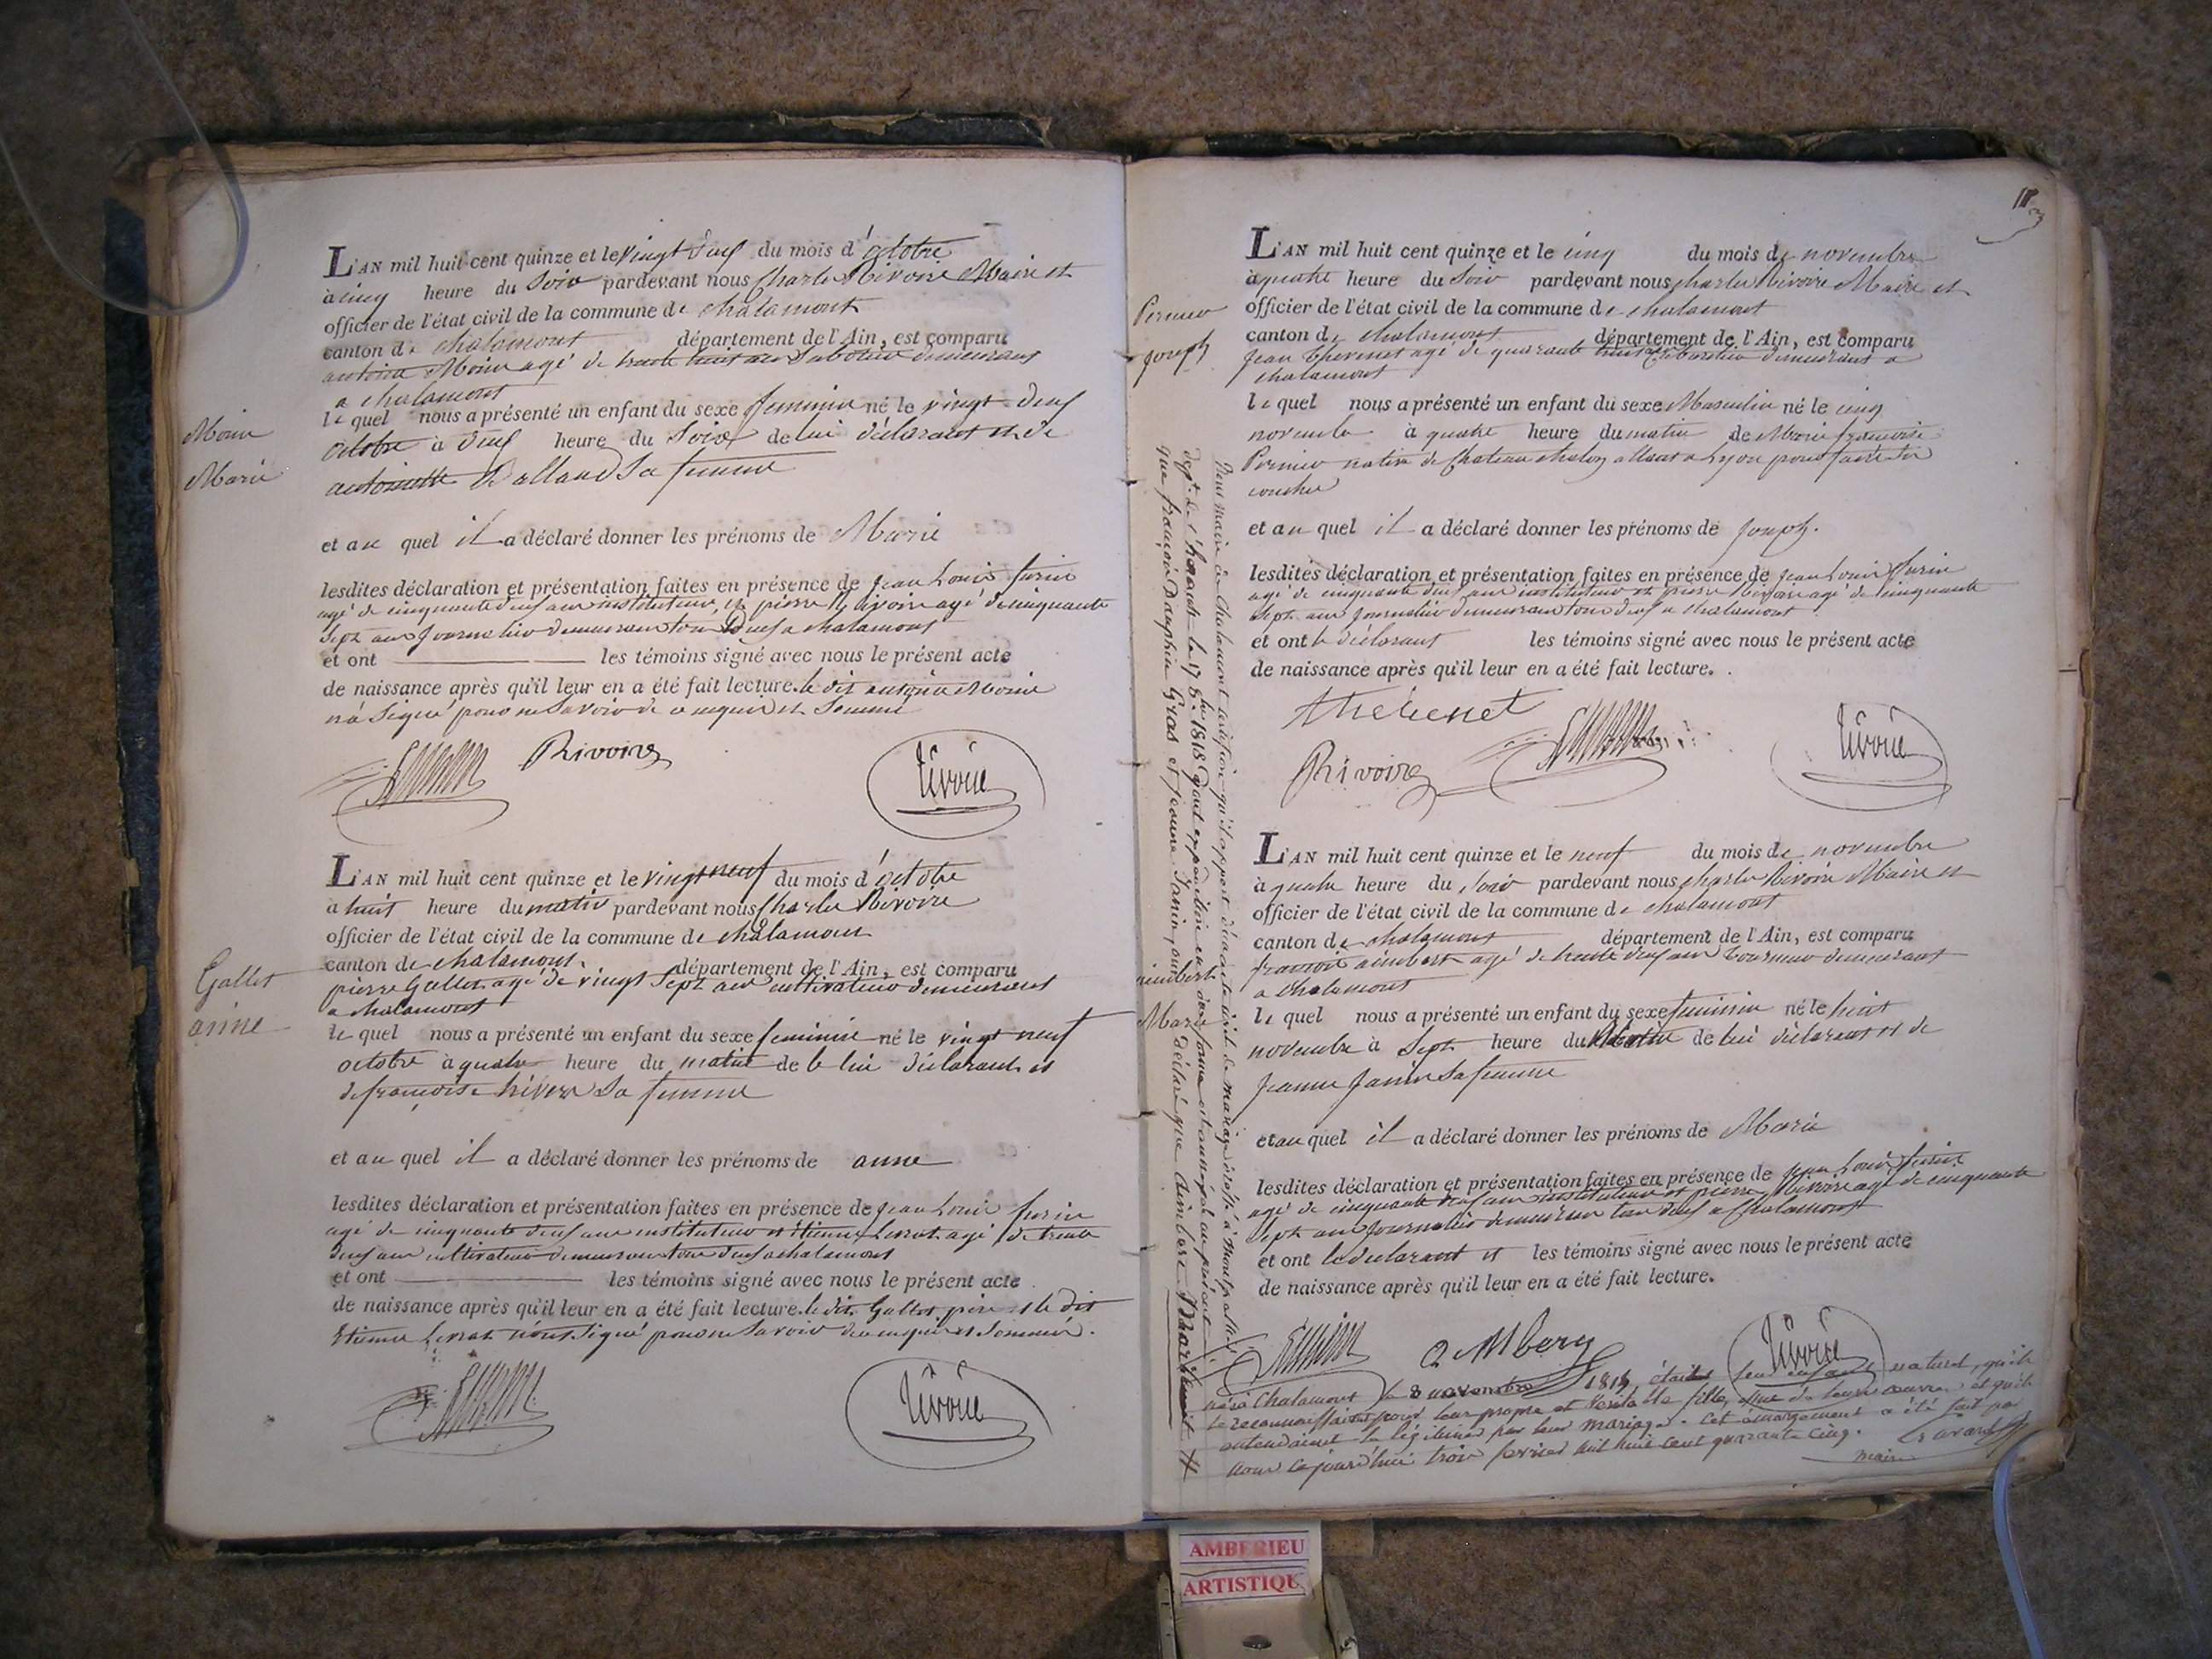 L'AN mil huit cent quinze et le vingt deux du mois d'octobre
à cinq heure du Soir pardevant nous Charles Rivoire Maire et
officier de l'état civil de la commune de chalamont
canton de chalamont département de l'Ain, est comparu
antoine Moine agé de trente huit ans Sabotier demeurant
a chalamont
Moine
Marie
le quel nous a présenté un enfant du sexe feminin né le vingt deux
octobre à deux heure du Soir de lui déclarant et de
antoinette Balland Sa femme
et au quel il a déclaré donner les prénoms de Marie
lesdites déclaration et présentation faites en présence de jean Louis
agé de cinquante deux ans instituteur et pierre Rivoire agé de cinquante
Sept ans Journalier demeurant tous Deux a chalamont
et ont les témoins signé avec nous le présent acte
de naissance après qu'il leur en a été fait lecture. le dit antoine Moine
n'a Signé pour ne Savoir de ce enquis et Sommé
Rivoire
Rivoire
L'AN mil huit cent quinze et le vingt neuf du mois d'octobre
à huit heure du matin pardevant nous Charles Rivoire
officier de l'état civil de la commune de chalamont
canton de chalamont. département de l'Ain, est comparu
pierre Gallet agé de vingt Sept ans cultivateur demeurant
a chalamont
Gallet
anne
le quel nous a présenté un enfant du sexe feminin né le vingt neuf
octobre à quatre heure du matin de lui déclarant et
de françoise Sa femme
et au quel il a déclaré donner les prénoms de anne
lesdites déclaration et présentation faites en présence de jean Louis
agé de cinquante deux ans instituteur et Etienne agé de trente
deux ans cultivateur demeurant tous deux a chalamont
et ont les témoins signé avec nous le présent acte
de naissance après qu'il leur en a été fait lecture. le dit Gallet père et le dit
Etienne n'ont Signé pour ne Savoir de ce enquis et Sommé.
Rivoire
L'AN mil huit cent quinze et le cinq du mois de novembre
à quatre heure du Soir pardevant nous charles Rivoire Maire et
officier de l'état civil de la commune de chalamont
canton de chalamont département de l'Ain, est comparu
jean Thevenet agé de quarante huit ans demeurant a
chalamont
Joseph
le quel nous a présenté un enfant du sexe Masculin né le cinq
novembre à quatre heure du matin de Marie françoise
native de Chateau chalon allant a Lyon pour faire Ses
couches
et au quel il a déclaré donner les prénoms de Joseph.
lesdites déclaration et présentation faites en présence de jean Louis
agé de cinquante deux ans instituteur et pierre Rivoire agé de cinquante
Sept ans Journalier demeurant tous deux a chalamont
et ont le déclarant les témoins signé avec nous le présent acte
de naissance après qu'il leur en a été fait lecture.
thevenet
Rivoire
Rivoire
L'AN mil huit cent quinze et le neuf du mois de novembre
à quatre heure du Soir pardevant nous charles Rivoire Maire et
officier de l'état civil de la commune de chalamont
canton de chalamont département de l'Ain, est comparu
françois aimbert agé de trente deux ans Tourneur demeurant
a chalamont
aimbert
Marie
le quel nous a présenté un enfant du sexe feminin né le huit
novembre à Sept heure du Matin de lui déclarant et de
jeanne Janin Sa femme
et au quel il a déclaré donner les prénoms de Marie
lesdites déclaration et présentation faites en présence de jean Louis
agé de cinquante deux ans instituteur et pierre Rivoire agé de cinquante
Sept ans Journalier demeurant tous deux a Chalamont
et ont le declarant et les témoins signé avec nous le présent acte
de naissance après qu'il leur en a été fait lecture.
Rivoire
Nous maire de Chalamont certifions qu'il appert d'un acte civil de mariage dressé à
dépt. de l' le 17 1818 dont expédition en
que françois Dauphin Gras et jeanne Janin, ont déclaré que
née à Chalamont le 8 novembre 1815, était leur enfant naturel, qu'ils
le reconnaissaient pour leur propre et véritable fille, issue de leurs œuvres et qu'ils
entendaient la légitimer par leur mariage. Cet émargement a été fait par
nous ce jourd'hui trois février mil huit cent quarante cinq.
maire
AMBERIEU
ARTISTIQUE